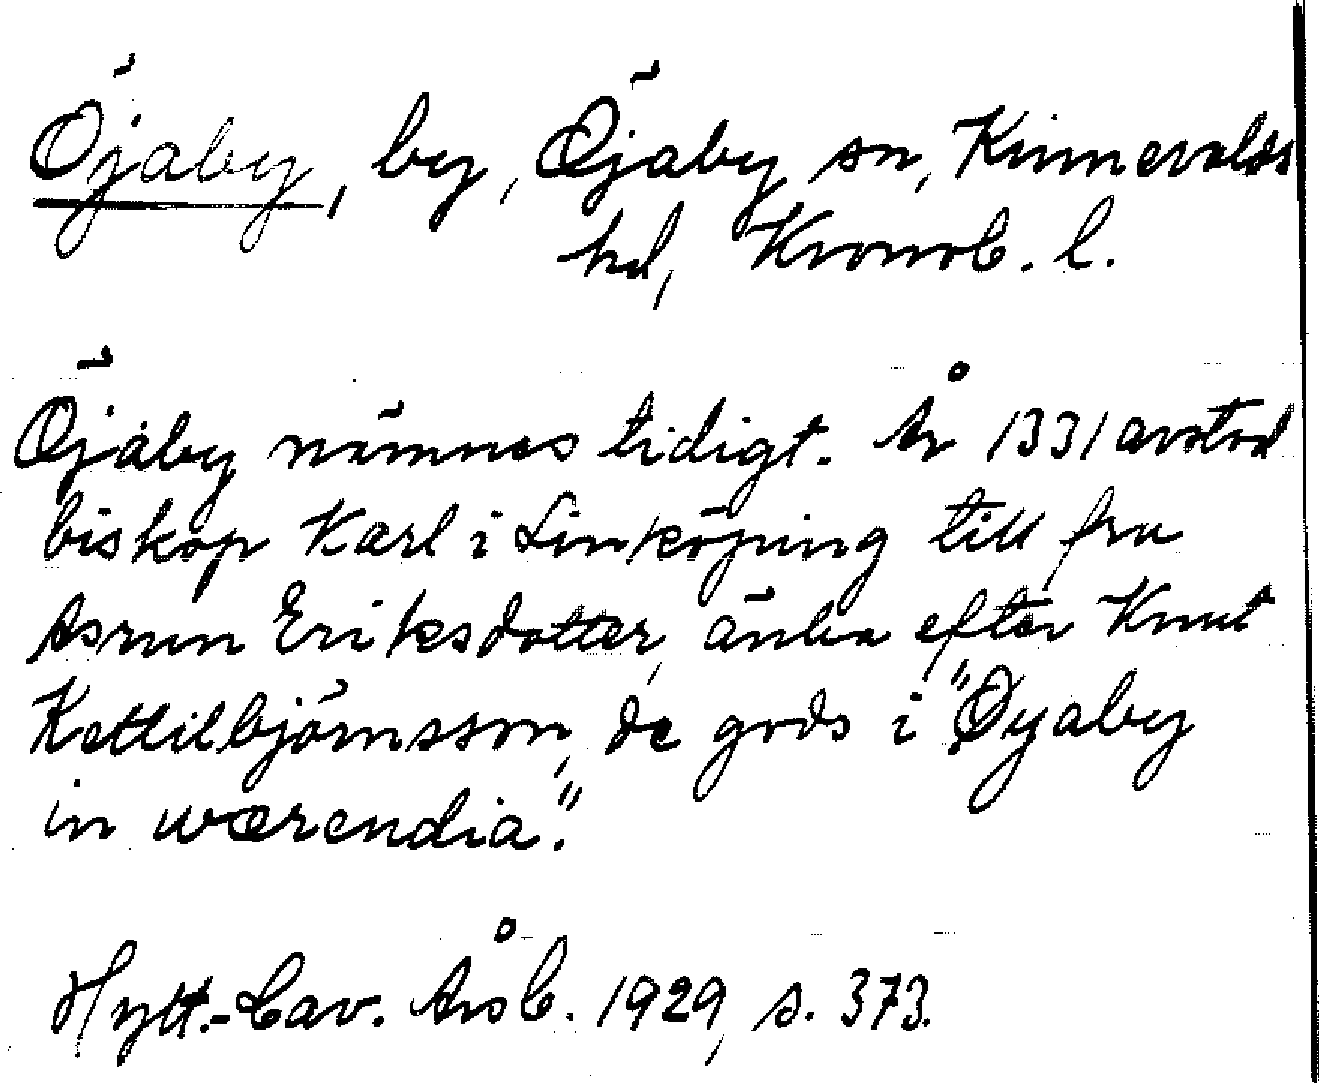 Öjaby, by, Öjaby sn, Kinnevalds
hd, Kronob. l.
Öjaby nämnes tidigt. År 1331 avstod
biskop Karl i Linköping till fru
Asrun Eriksdotter, änka efter Knut
Kettilbjörnsson, de gods i "Øyaby
in wærendia".
Hylt.-Cav. Årsb. 1929, s. 373.